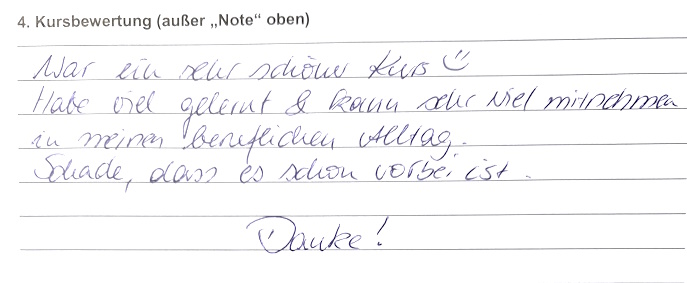 4. Kursbewertung (außer „Note“ oben)
War ein sehr schöner Kurs ☺
Habe viel gelernt & kann sehr viel mitnehmen
in meinen beruflichen Alltag.
Schade, dass es schon vorbei ist.
Danke!